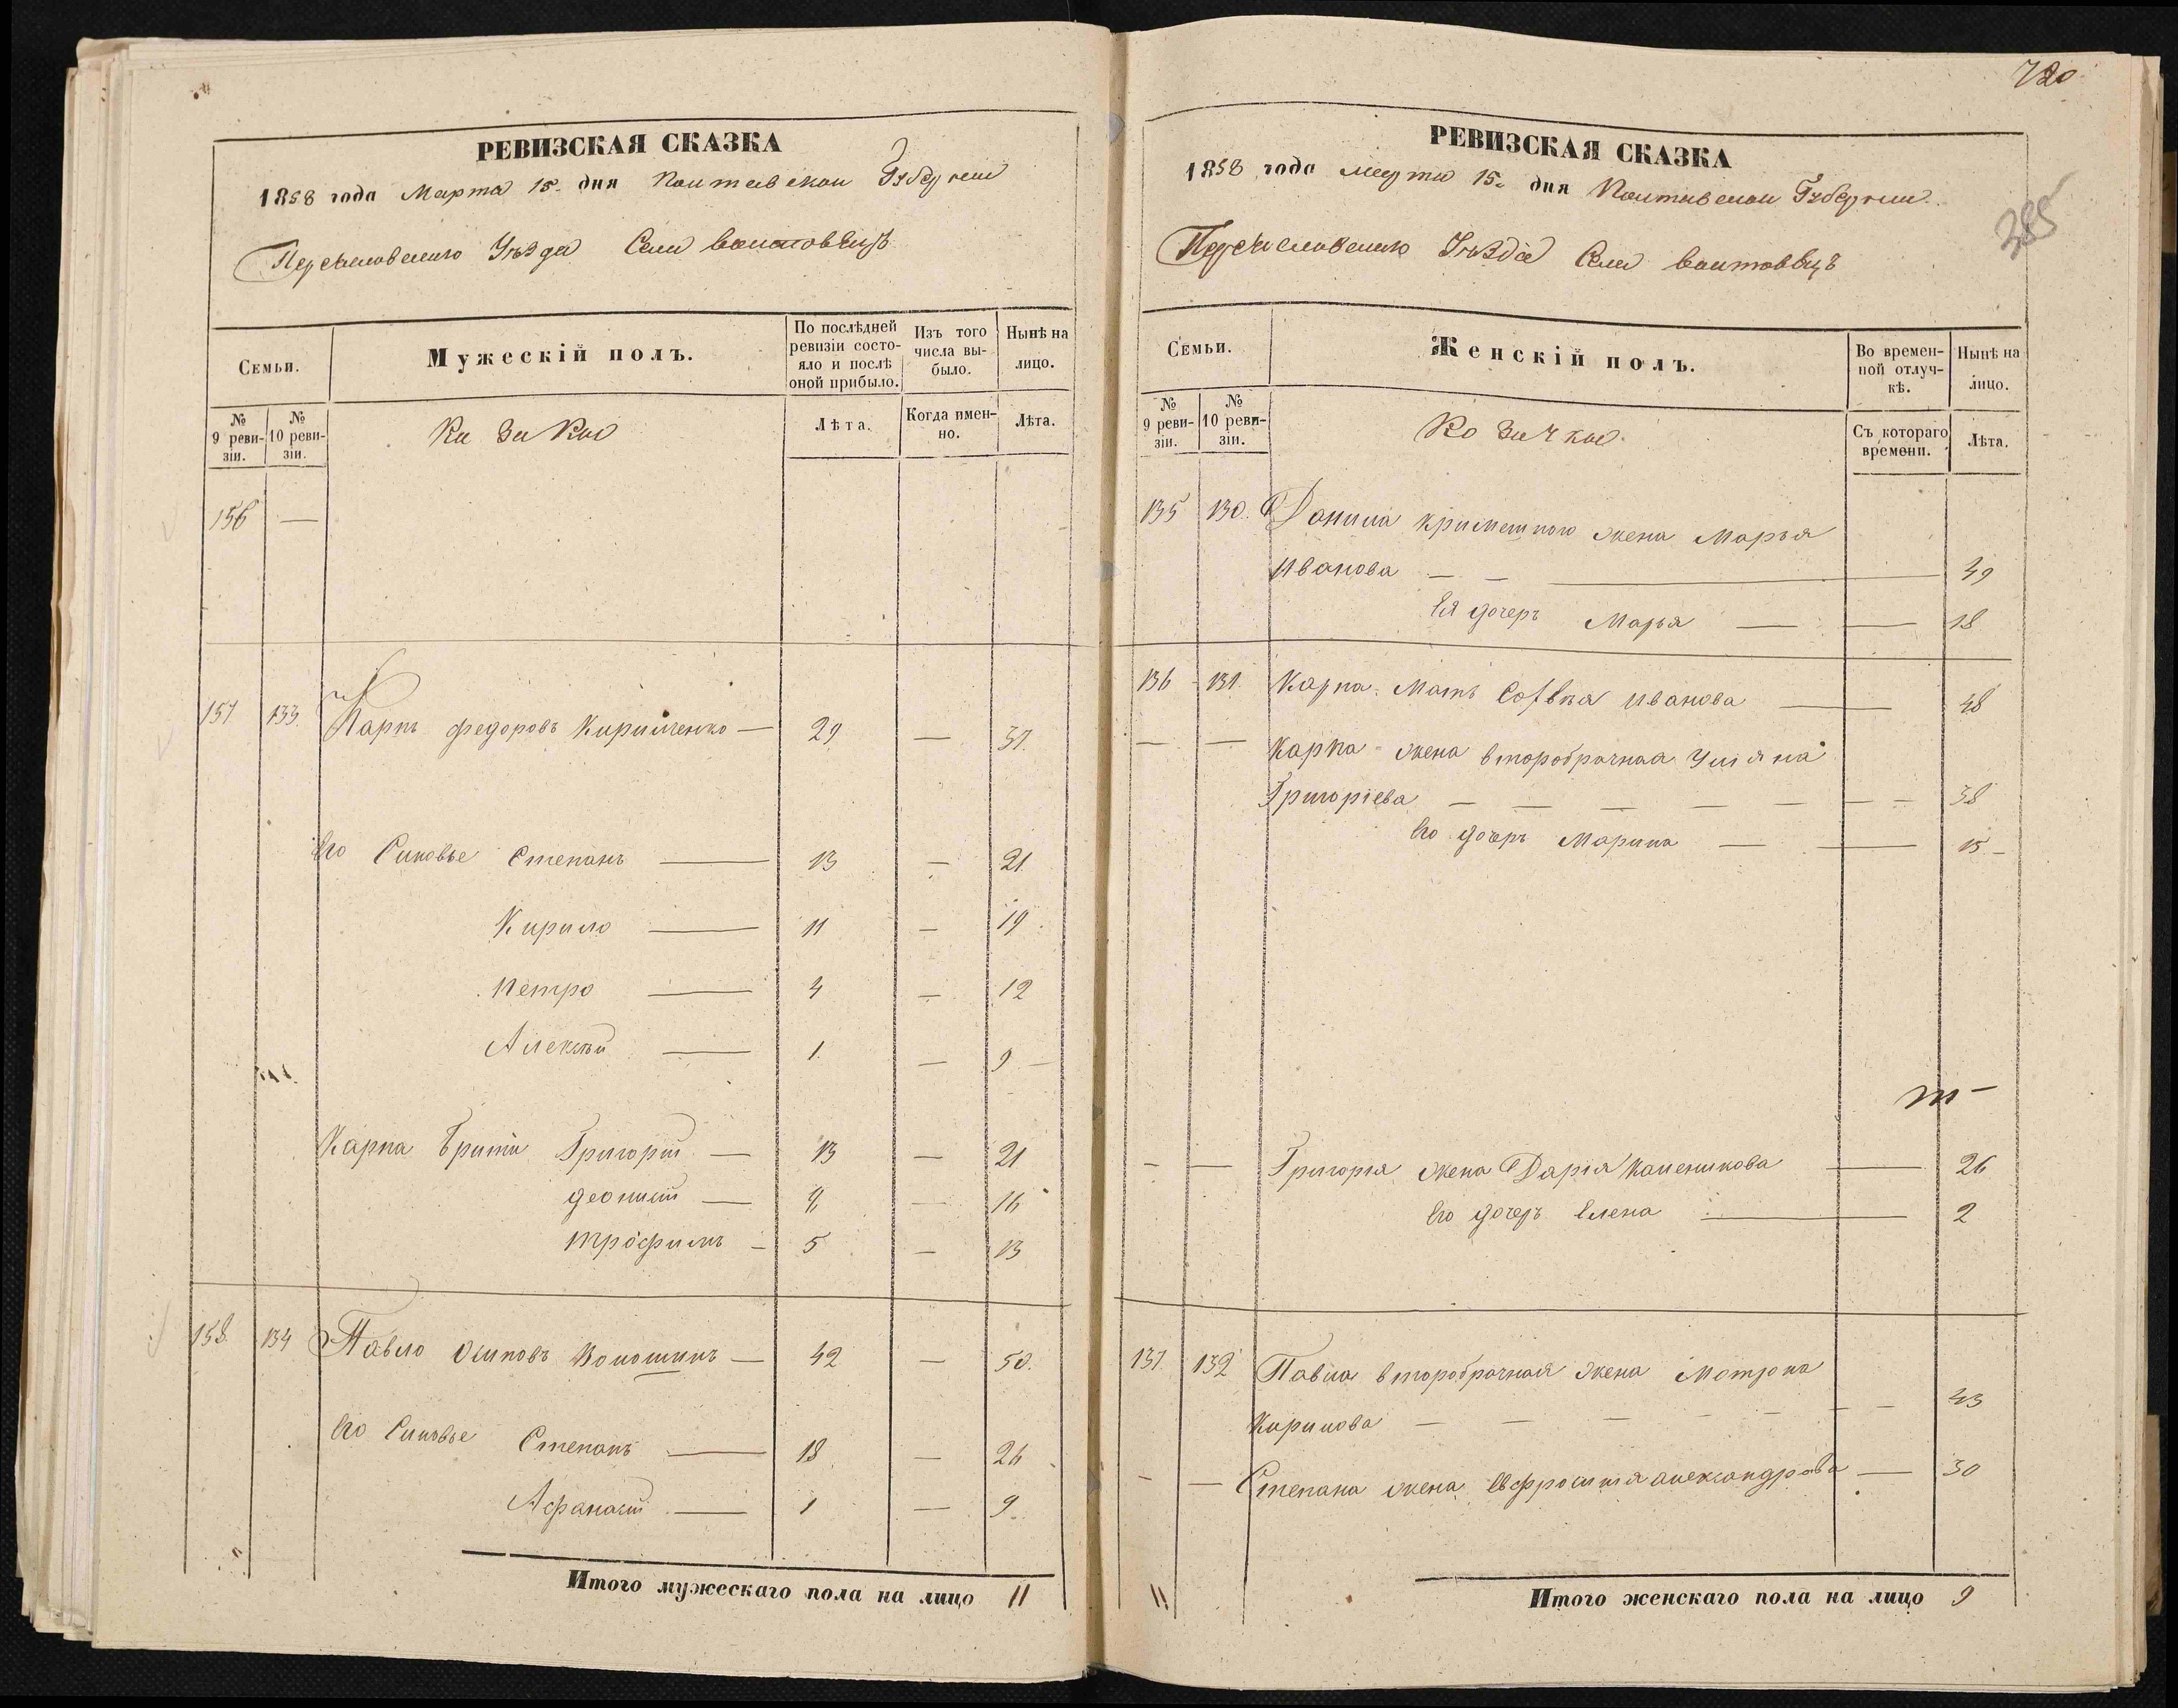 РЕВИЗСКАЯ СКАЗКА
1858 года Марта 15 дня Полтавской Губернии
Переяславского Уѣзда Села Войтовецъ
Семьи.
Мужескій полъ.
По послѣдней ревизіи состояло и послѣ оной прибыло.
Изъ того числа выбыло.
Нынѣ на лицо.
№ 9 ревизіи.
№ 10 ревизіи.
Козаки
Лѣта.
Когда именно.
Лѣта.
156 —
157 133 Карпъ Федоровъ Кириленко — 29 — 37.
Его Сыновье Степанъ — 13 — 21
Кирило — 11 — 19
Петро — 4 — 12
Алексѣй — 1 — 9 —
Карпа Браты Григорій — 13 — 21
Деонисій — 8 — 16
Трофимъ — 5 — 13
158 134 Павло Осиповъ Волошинъ — 42 — 50.
Его Сыновье Степанъ — 18 — 26
Афанасій — 1 — 9
Итого мужескаго пола на лицо 11
720
385
РЕВИЗСКАЯ СКАЗКА
1858 года Марта 15 дня Полтавской Губернии
Переяславского Уѣзда Села Войтовецъ
Семьи.
Женскій полъ.
Во временной отлучкѣ.
Нынѣ на лицо.
№ 9 ревизіи.
№ 10 ревизіи.
Козачки
Съ котораго времени.
Лѣта.
135 130. Данила жена Марья
Иванова — — — 49
Ея дочерь Марья — — 18
136 131. Карпа Мать Софія Иванова — 48
— — Карпа жена второбрачная Уліяна
Григоріева — — — — — — — 38
Его дочерь Марина — — 15 —
— — Григорія жена Дарія — 26
Его дочерь Елена — 2
137 132 Павла второбрачная жена Мотрона
Кирилова — — — — — — — 43
— — Степана жена Евфросинія Александрова — 30
11
Итого женскаго пола на лицо 9